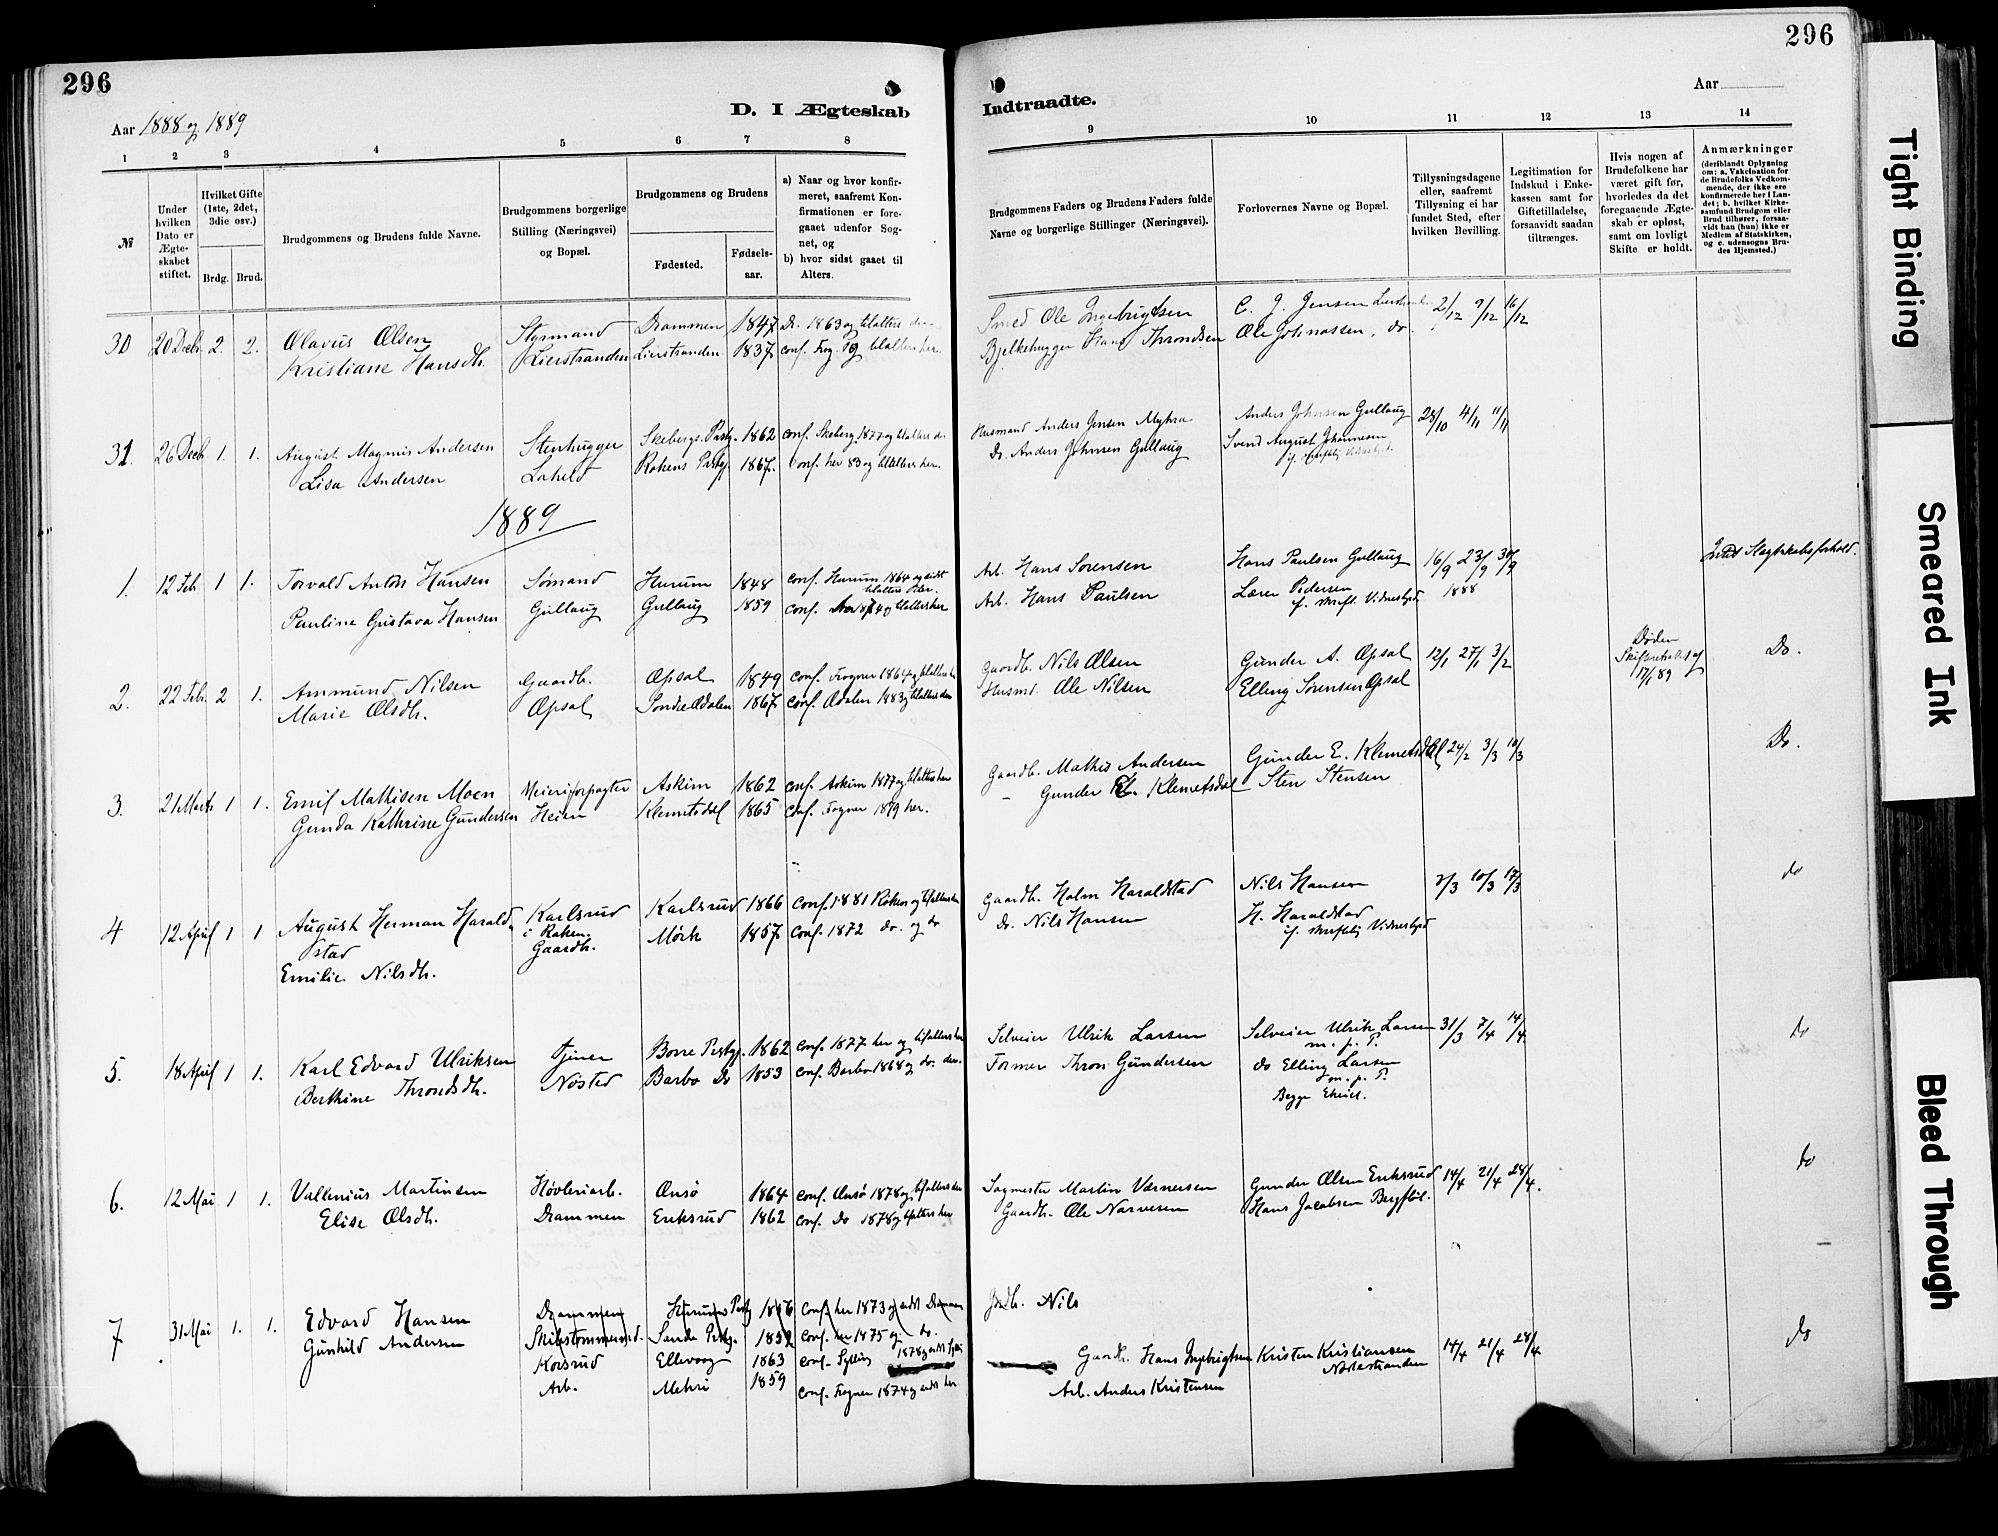 296
296
D. I Ægteskab
Indtraadte.
Aar
Aar 1888 og 1889
1 2 3 4 5 6 7 8
9 10 11 12 13 14
№
Under hvilken Dato er Ægteskabet stiftet.
Hvilket Gifte (1ste, 2det, 3die osv.)
Brdg. Brud.
Brudgommens og Brudens fulde Navne.
Brudgommens borgerlige Stilling (Næringsvei) og Bopæl.
Brudgommens og Brudens
Fødested. Fødsels-aar.
a) Naar og hvor konfir-
meret, saafremt Kon-
firmationen er fore-
gaaet udenfor Sog-
net, og
b) hvor sidst gaaet til
Alters.
Brudgommens Faders og Brudens Faders fulde
Navne og borgerlige Stillinger (Næringsvei).
Forlovernes Navne og Bopæl.
Tillysningsdagene
eller, saafremt
Tillysning ei har
fundet Sted, efter
hvilken Bevilling.
Legitimation for
Indskud i Enke-
kassen samt for
Giftetilladelse,
forsaavidt saadan
tiltrænges.
Hvis nogen af
Brudefolkene har
været gift før,
hvorledes da det
foregaaende Ægte-
skab er opløst,
samt om lovligt
Skifte er holdt.
Anmærkninger
(deriblandt Oplysning
om: a. Vakcination for
de Brudefolks Vedkom-
mende, der ikke ere
konfirmerede her i Lan-
det; b. hvilket Kirke-
samfund Brudgom eller
Brud tilhører, forsaa-
vidt han (hun) ikke er
Medlem af Statskirken,
og c. udensogns Bru-
des Hjemsted.)
30 20 Decbr. 2. 2. Olavus Olsen Styrmand Drammen 1847 Dr. 1863 og
Kristiane Hansdtr. Lierstranden Lierstranden 1837 conf. Frog.
Smed Ole Ingebrigtsen C. J. Jensen Lierstranden 2/12 9/12 16/12
Bjelkehugger Hans Throndsen Ole Johnassen, do.
31. 26 Decbr. 1. 1. August Magnus Andersen Stenhugger Skebergs Prstg. 1862 conf. Skeberg 1877 og
Lisa Andersen Lahell Rokens Prstg. 1867. conf. her 83 og tilalters her.
Husmand Anders Jensen Myhra Anders Johnsen Gullaug 28/10 4/11 11/11
Do. Anders Johnsen Gullaug Svend August Johannesen
1889
1. 12 Feb. 1 1. Torvald Anton Hansen Sømand Hurum 1848 conf. Hurum 1864 og sidst
Pauline Gustava Hansen Gullaug Gullaug 1859 conf. her 1874 og tilalters her
Arb. Hans Sorensen Hans Paulsen Gullaug 16/9 23/9 30/9
Arb. Hans Paulsen Lærer Pedersen 1888
if. skriftl. Vidnesbyrd
Intet Slegtskabsforhold.
2. 22 Feb. 2 1. Ammund Nilsen Gaardb. Opsal 1849 conf. Frogner 1864 og tilalters her
Marie Olsdtr. Opsal Sondre Odalen 1867 conf. Odalen 1883 og tilalters den
Gaardb. Nils Olsen Gunder A. Opsal 12/1 27/1 3/2
Husmd. Ole Nilsen Elling Sorensen Opsal
Døden
Skifteretsattest af
17/1 89
Do.
3. 21 Marts 1 1. Emil Mathisen Moen Meieriforpagter Askim 1862 conf. Askim 1877 og tilalters her
Gunda Kathrine Gundersen Heien Klemetsdal 1865 conf. Frogner 1879 her.
Gaardb. Mathis Andersen Gunder E. Klemetsdal 24/2 3/3 10/3
– Gunder E. Klemetsdal – Sten Stensen
Do.
4 12 April 1 1 August Herman Harald- Karlsrud Karlsrud 1866 conf. 1881 Roken og tilalters
stad i Roken. Mørk 1857 conf. 1872 do. og do
Emilie Nilsdtr. Gaardb.
Gaardb. Holm Haraldstad Nils Hansen 3/3 10/3 17/3
Do. Nils Hansen H. Haraldstad
if. skriftlig Vidnesbyrd
do
5. 18 April 1 1. Karl Edvard Ulriksen Tjener Borre Prstgj. 1862 conf. 1877 her og tilalters her
Berthine Throndsdtr. Nøsted Barbo Do 1853 conf. Barbo 1868 og do. den.
Selveier Ulrik Larsen Selveier Ulrik Larsen 31/3 7/4 14/4
m. p. P.
Former Thron Gundersen do Elling Larsen
m. p. P.
do
6. 12 Mai 1 1. Vallenius Martinsen Høvleriarb. Onsø 1864 conf. Onsø 1878 og tilalters den
Elise Olsdtr. Drammen Eriksrud 1862 conf. Do 1878 og tilalters her
Sagmester Martin Værnersen Gunder Olsen Eriksrud 14/4 21/4 28/4.
Gaardb. Ole Narvesen Hans Jacobsen
do
7 31 Mai 1. 1. Edvard Hansen Drammen Hurums Prstg 1856 conf. her 1873 og sidst Drammen
Gunhild Andersen Skibstømmermd. Sande Prstg. 1852 conf. her 1875 og do.
Korsrud Ellevaag 1863 conf. Sylling 1878 og sidst
Arb. Mehri 1859 conf. Frogner 1874 og sidst her
Grdb. Nils
Gaardb. Hans Ingebrigtsen Kristen Kristiansen 14/4 21/4 28/4
Arb. Anders Kristensen
do
Tight Binding
Smeared Ink
Bleed Through